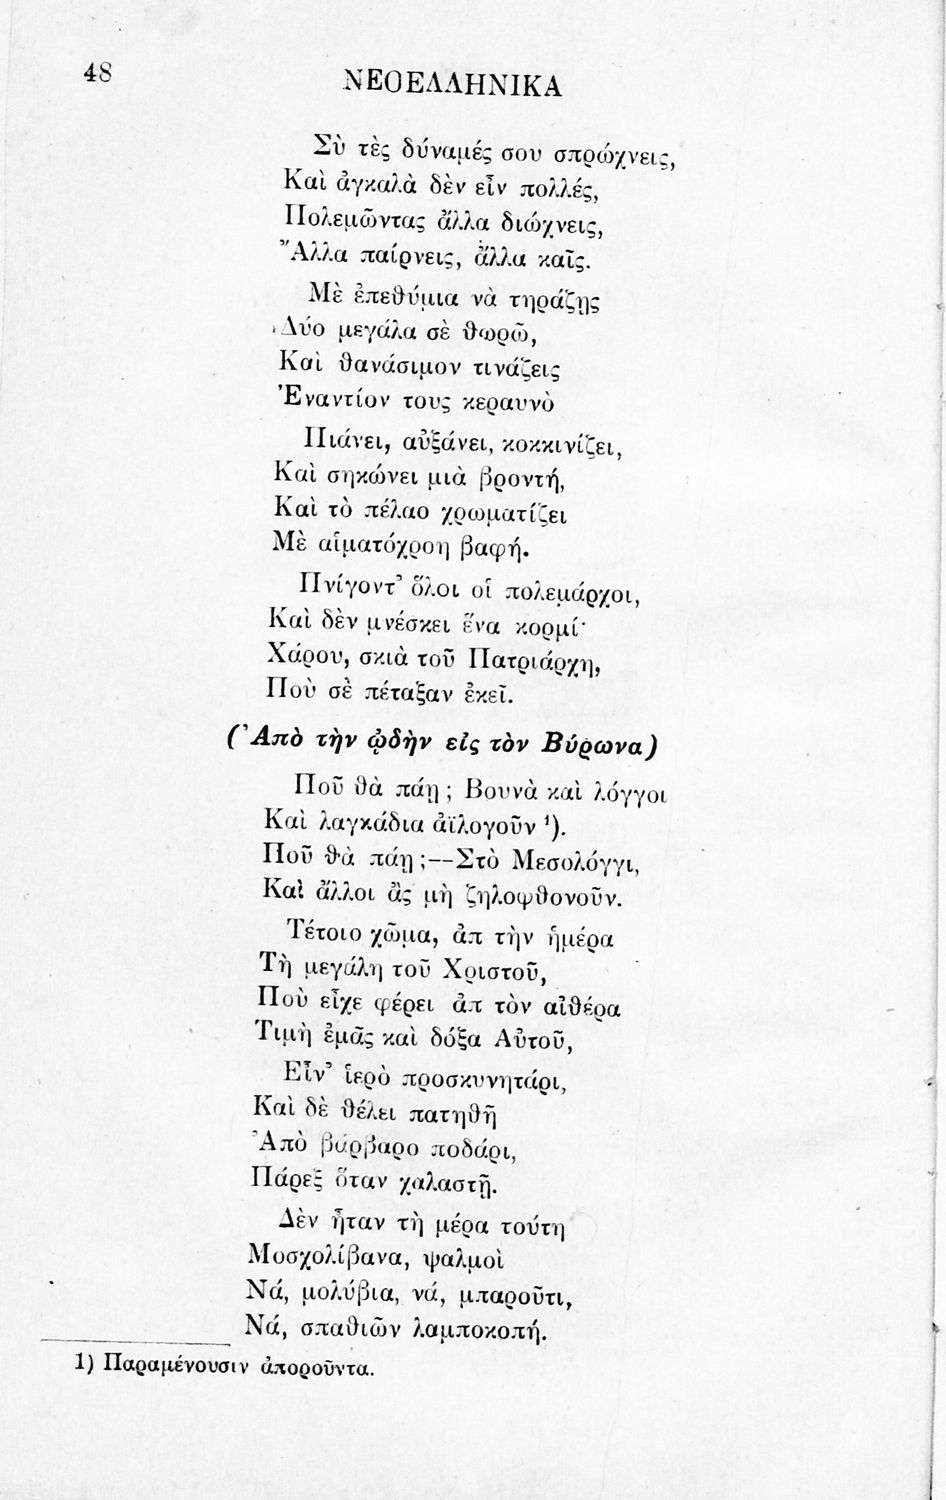 48
ΝΕΟΕΛΛΗΝΙΚΑ
Σὺ τὲς δύναμές σου σπρώχνεις,
Καὶ ἀγκαλὰ δὲν εἶν πολλές,
Πολεμῶντας ἄλλα διώχνεις,
Ἄλλα παίρνεις, ἄλλα καῖς.
Μὲ ἐπεθύμια νὰ τηράζῃς
Δύο μεγάλα σὲ θωρῶ,
Καὶ θανάσιμον τινάζεις
Ἐναντίον τους κεραυνὸ
Πιάνει, αὐξάνει, κοκκινίζει,
Καὶ σηκώνει μιὰ βροντή,
Καὶ τὸ πέλαο χρωματίζει
Μὲ αἱματόχροη βαφή.
Πνίγοντ᾽ ὅλοι οἱ πολεμάρχοι,
Καὶ δὲν μνέσκει ἕνα κορμί·
Χάρου, σκιὰ τοῦ Πατριάρχη,
Ποὺ σὲ πέταξαν ἐκεῖ.
(Ἀπὸ τὴν ᾠδὴν εἰς τὸν Βύρωνα)
Ποῦ θὰ πάῃ; Βουνὰ καὶ λόγγοι
Καὶ λαγκάδια ἀϊλογοῦν ¹).
Ποῦ θὰ πάῃ;—Στὸ Μεσολόγγι,
Καὶ ἄλλοι ἂς μὴ ζηλοφθονοῦν.
Τέτοιο χῶμα, ἀπ τὴν ἡμέρα
Τὴ μεγάλη τοῦ Χριστοῦ,
Ποὺ εἶχε φέρει ἀπ τὸν αἰθέρα
Τιμὴ ἐμᾶς καὶ δόξα Αὐτοῦ,
Εἶν᾽ ἱερὸ προσκυνητάρι,
Καὶ δὲ θέλει πατηθῆ
Ἀπὸ βάρβαρο ποδάρι,
Πάρεξ ὅταν χαλαστῇ.
Δὲν ἦταν τὴ μέρα τούτη
Μοσχολίβανα, ψαλμοὶ
Νά, μολύβια, νά, μπαροῦτι,
Νά, σπαθιῶν λαμποκοπή.
1) Παραμένουσιν ἀποροῦντα.